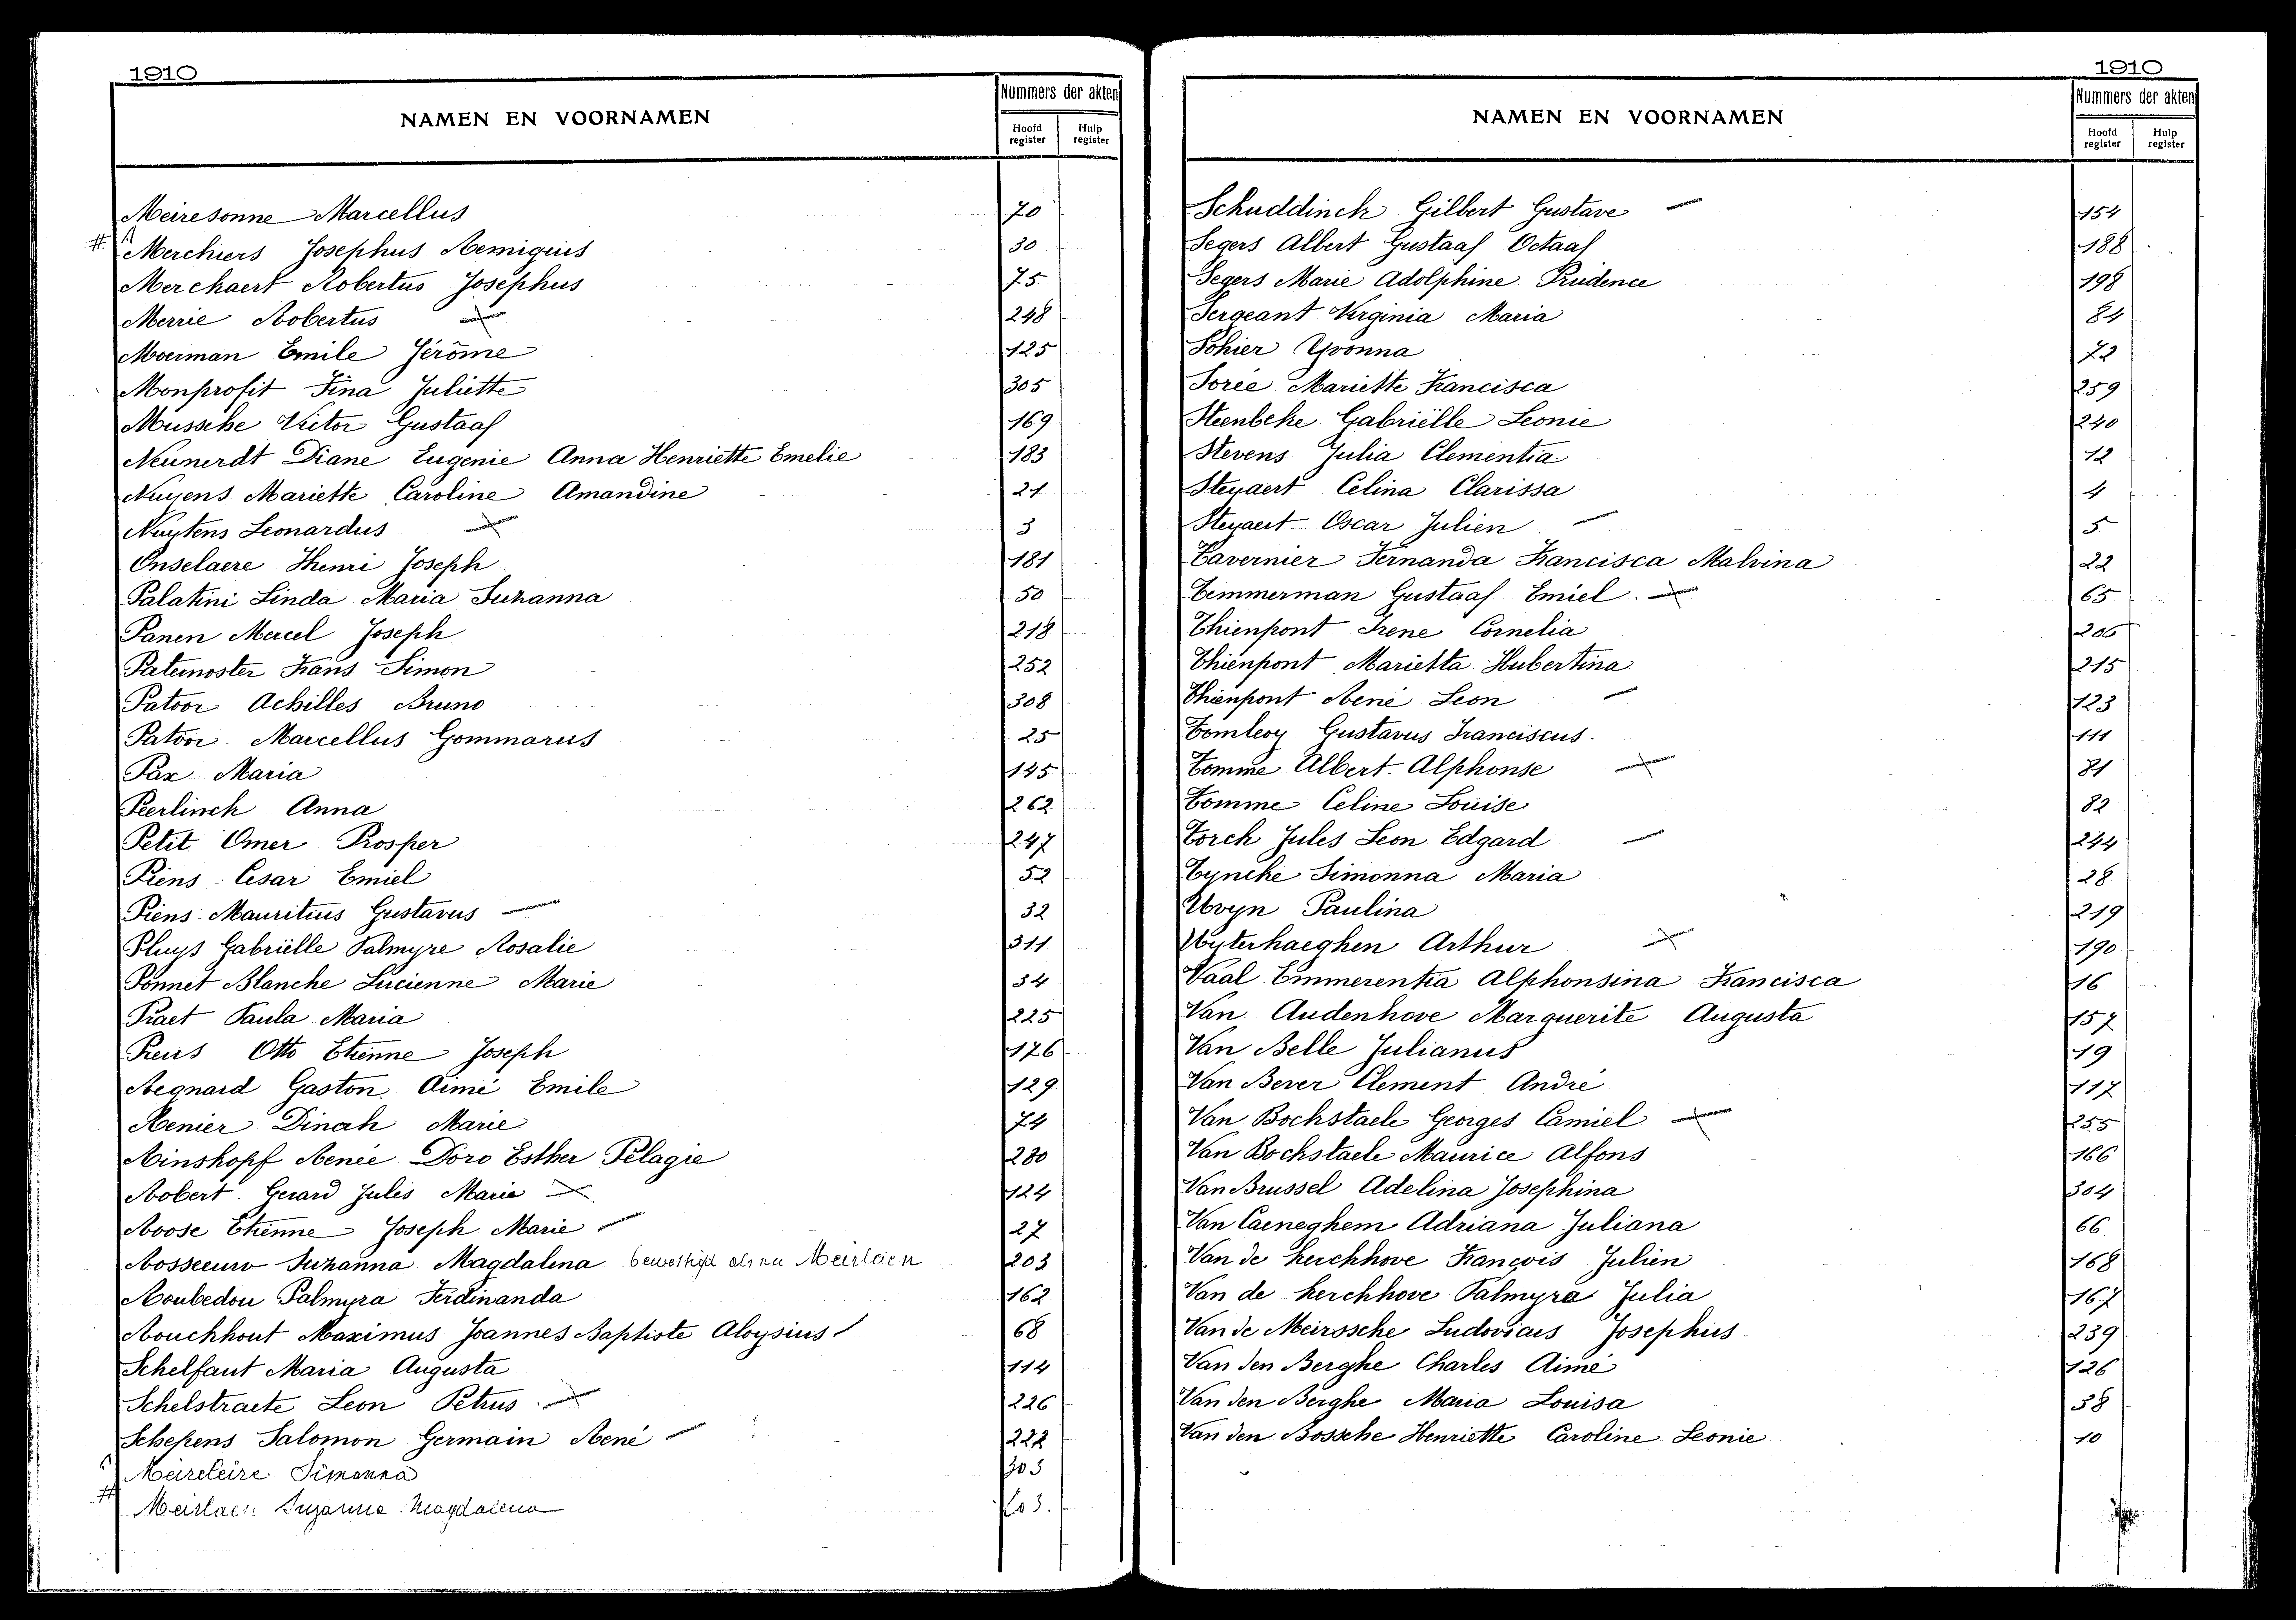 1910
NAMEN EN VOORNAMEN
Nummers der akten
Hoofd register
Hulp register
Meiresonne Marcellus 70
# Merchiers Josephus Remigius 30
Merchaert Robertus Josephus 75
Merrie Robertus 248
Moerman Emile Jérôme 125
Monprofit Fina Juliette 305
Mussche Victor Gustaaf 169
Neunerdt Diane Eugenie Anna Henriette Emelie 183
Nuyens Mariette Caroline Amandine 21
Nuytens Leonardus 3
Onselaere Henri Joseph 181
Palatini Linda Maria Suzanna 50
Panen Marcel Joseph 218
Paternoster Frans Simon 252
Patoor Achilles Bruno 308
Patoor Marcellus Gommarus 25
Pax Maria 145
Peerlinck Anna 262
Petit Omer Prosper 247
Piens Cesar Emiel 52
Piens Mauritius Gustavus 32
Pluys Gabriëlle Palmyre Rosalie 311
Ponnet Blanche Lucienne Marie 34
Praet Paula Maria 225
Preus Otto Etienne Joseph 176
Regnard Gaston Aimé Emile 129
Renier Dinah Marie 74
Rinskopf Renée Doro Esther Pélagie 280
Robert Gerard Jules Marie 124
Roose Etienne Joseph Marie 27
Rosseeuw Suzanna Magdalena 203
Roubedou Palmyra Ferdinanda 162
Rouckhout Maximus Joannes Baptiste Aloysius 68
Schelfaut Maria Augusta 114
Schelstraete Leon Petrus 226
Schepens Salomon Germain René 222
Meireleire Simonna 303
# Meirlaen Suzanna Magdalena 203.
1910
NAMEN EN VOORNAMEN
Nummers der akten
Hoofd register
Hulp register
Schuddinck Gilbert Gustave 154
Segers Albert Gustaaf Octaaf 188
Segers Marie Adolphine Prudence 198
Sergeant Virginia Maria 84
Sohier Yvonna 72
Sorée Mariette Francisca 259
Steenbeke Gabriëlle Leonie 240
Stevens Julia Clementia 12
Steyaert Celina Clarissa 4
Steyaert Oscar Julien 5
Tavernier Fernanda Francisca Malvina 22
Temmerman Gustaaf Emiel 65
Thienpont Irene Cornelia 206
Thienpont Marietta Hubertina 215
Thienpont René Leon 123
Tomleoy Gustavus Franciscus 111
Tomme Albert Alphonse 81
Tomme Celine Louise 82
Torck Jules Leon Edgard 244
Tyncke Simonna Maria 28
Uvyn Paulina 219
Uyterhaeghen Arthur 190
Vaal Emmerentia Alphonsina Francisca 16
Van Audenhove Marguerite Augusta 157
Van Belle Julianus 19
Van Bever Clement André 117
Van Bockstaele Georges Camiel 255
Van Bockstaele Maurice Alfons 166
Van Brussel Adelina Josephina 304
Van Caeneghem Adriana Juliana 66
Van de Kerckhove François Julien 168
Van de Kerckhove Palmyra Julia 167
Van de Meirssche Ludovicus Josephus 239
Van den Berghe Charles Aimé 126
Van den Berghe Maria Louisa 58
Van den Bossche Henriette Caroline Leonie 10